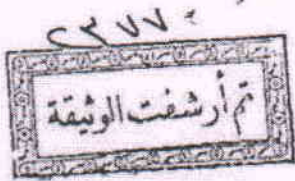 ٢٣٧٧
تم أرشفت الوثيقة